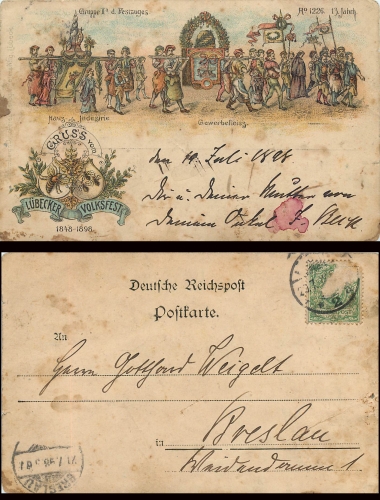 Gruppe Iª d. Festzuges.
Aº 1226. 13. Jahrh.
Gewerbefleiss
GRUSS vom
LÜBECKER VOLKSFEST
1848-1898
den 10. Juli 1898
Dir u. Deiner Mutter von
Deinem Onkel
Deutsche Reichspost
Postkarte.
An
Herrn Gotthard Weigelt
in Breslau
BRESLAU